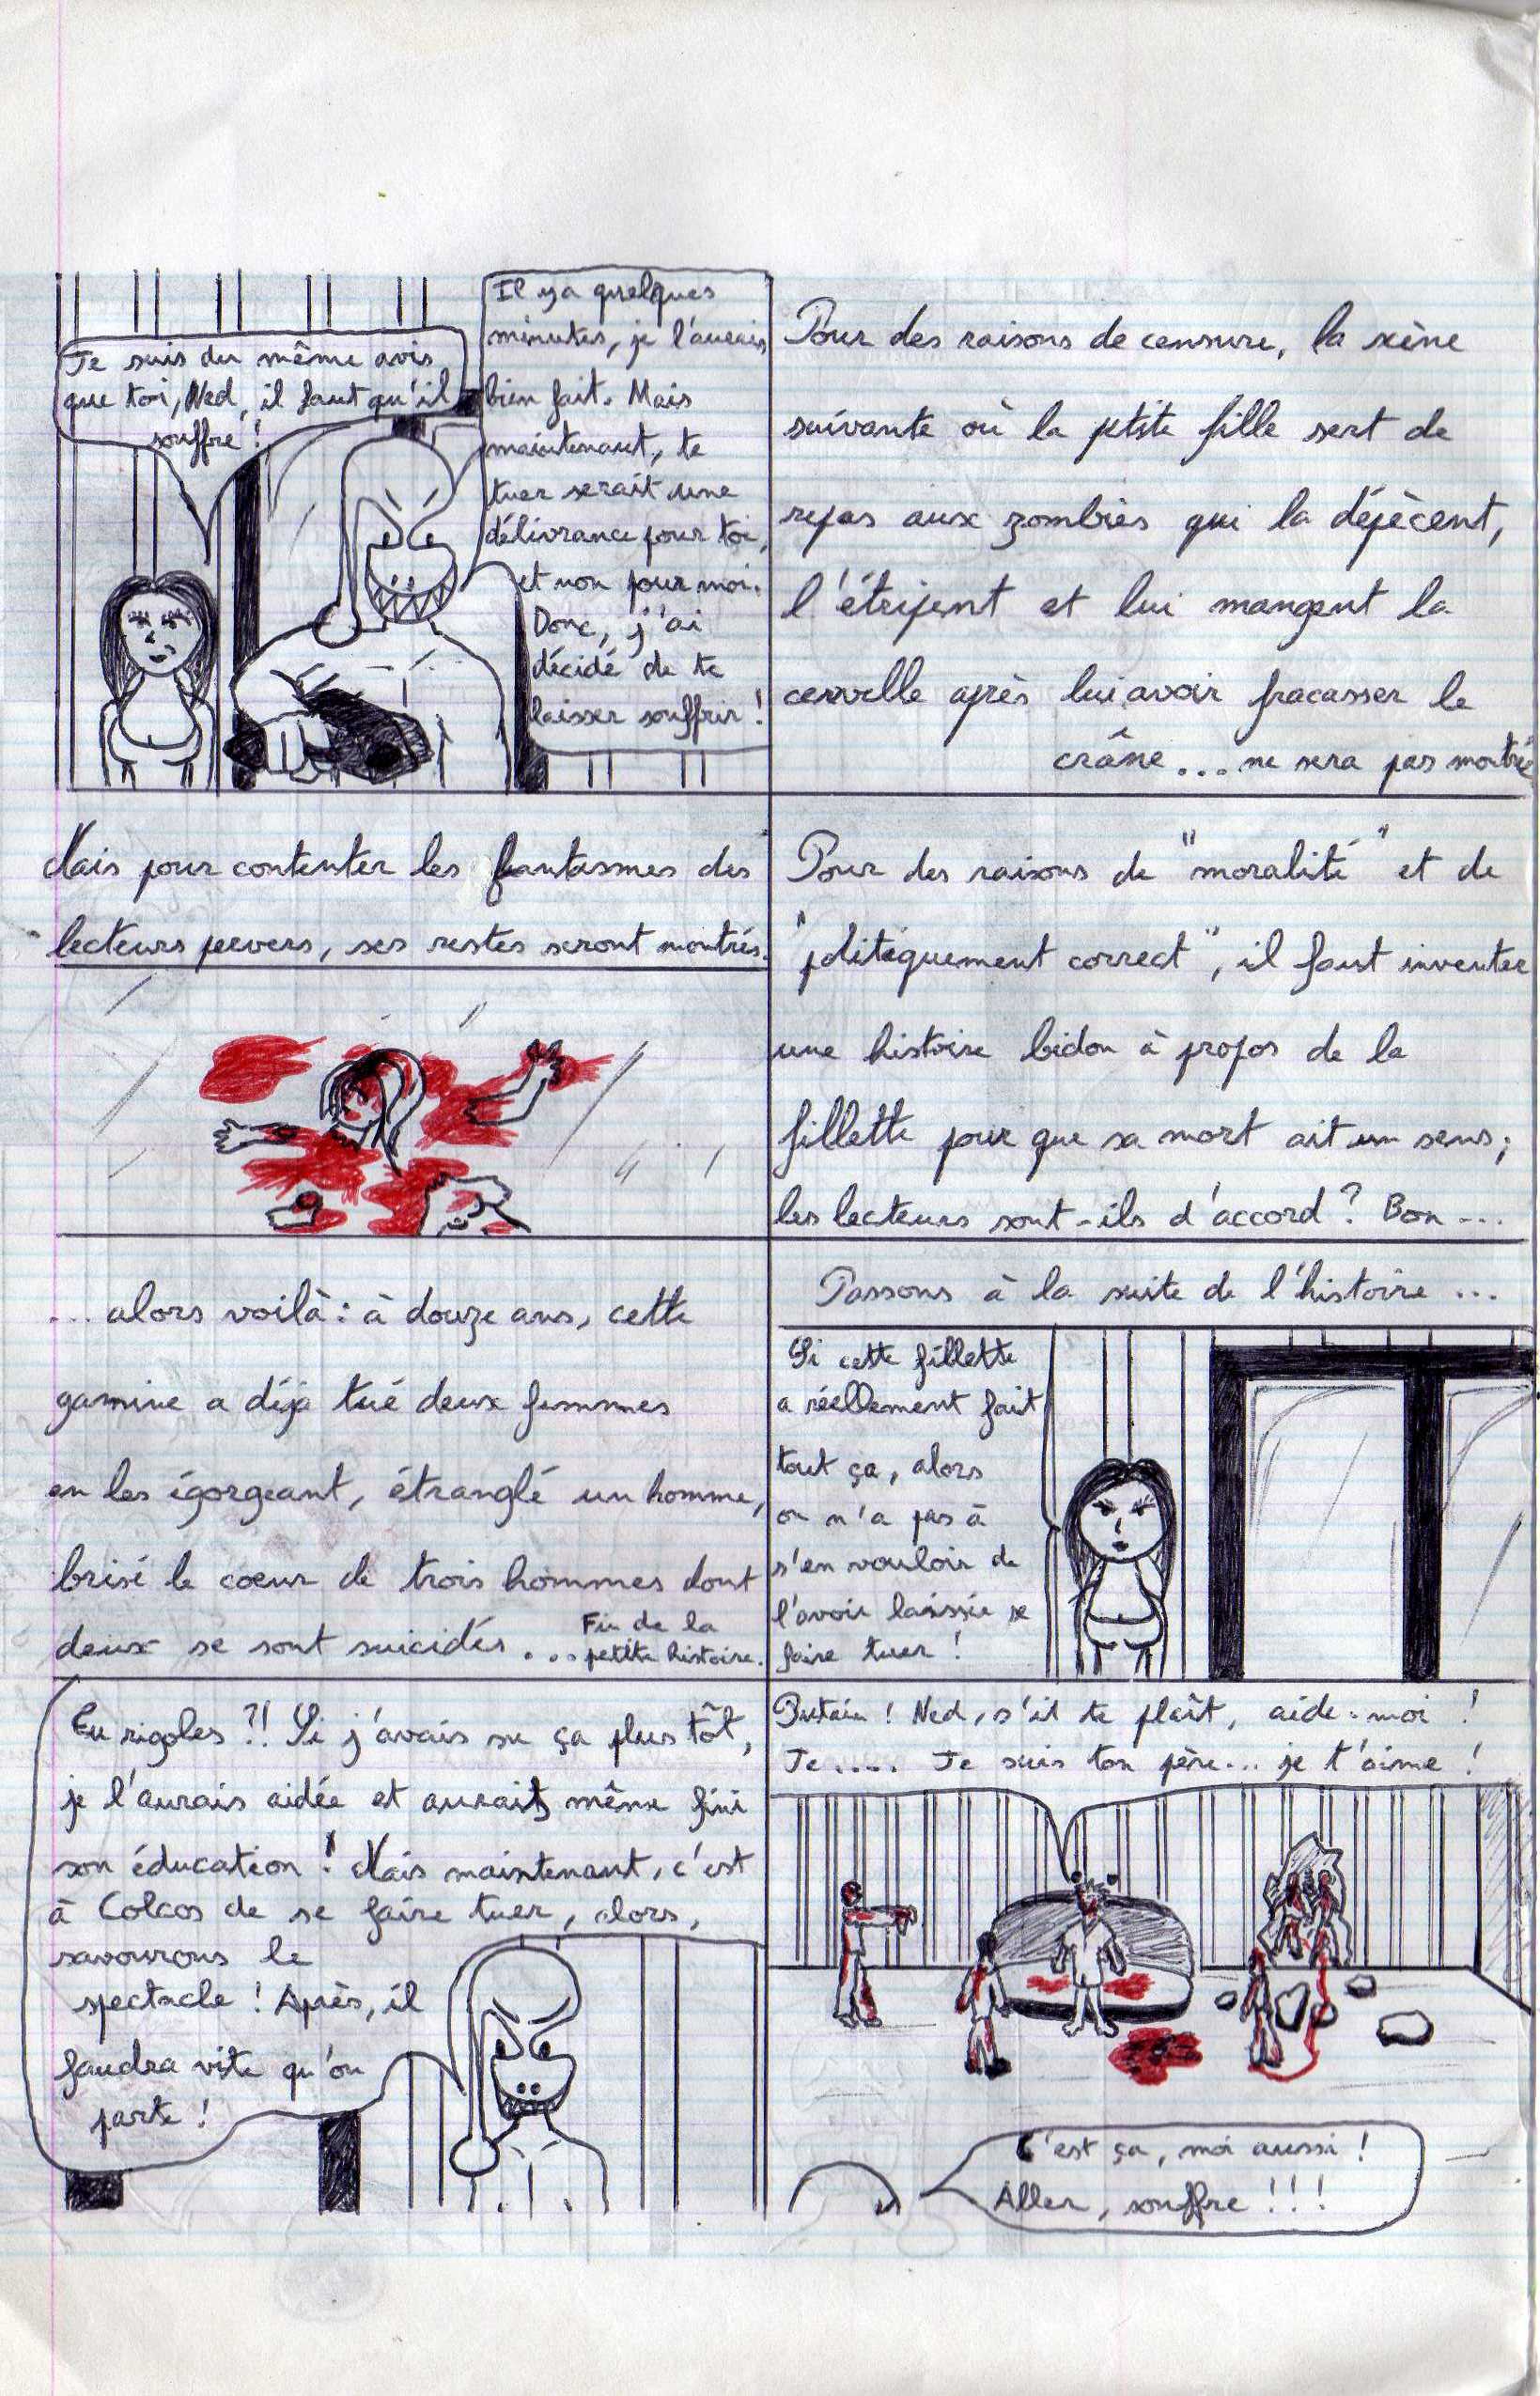 Je suis du même avis
que toi, Ned, il faut qu'il
souffre !
Il y a quelques
minutes, je l'aurais
bien fait. Mais
maintenant, te
tuer serait une
délivrance pour toi,
et non pour moi.
Donc, j'ai
décidé de te
laisser souffrir !
Pour des raisons de censure, la scène
suivante où la petite fille sert de
repas aux zombies qui la dépècent,
l'étripent et lui mangent la
cervelle après lui avoir fracasser le
crâne... ne sera pas montrée
Mais pour contenter les fantasmes des
lecteurs pervers, ses restes seront montrés.
Pour des raisons de "moralité" et de
"politiquement correct", il faut inventer
une histoire bidon à propos de la
fillette pour que sa mort ait un sens ;
les lecteurs sont-ils d'accord ? Bon ...
... alors voilà : à douze ans, cette
gamine a déjà tué deux femmes
en les égorgeant, étranglé un homme,
brisé le coeur de trois hommes dont
deux se sont suicidés ...
Fin de la
petite histoire.
Passons à la suite de l'histoire ...
Si cette fillette
a réellement fait
tout ça, alors
on n'a pas à
s'en vouloir de
l'avoir laissée se
faire tuer !
Tu rigoles ?! Si j'avais su ça plus tôt,
je l'aurais aidée et aurais même fini
son éducation ! Mais maintenant, c'est
à Colcos de se faire tuer, alors,
savourons le
spectacle ! Après, il
faudra vite qu'on
parte !
Putain ! Ned, s'il te plaît, aide-moi !
Je .... Je suis ton père... je t'aime !
C'est ça, moi aussi !
Aller, souffre !!!